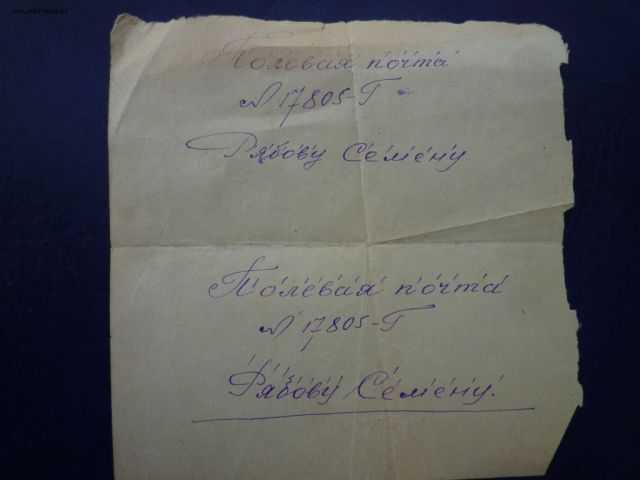 Полевая почта
N 17805-Г
Рябову Семену
Полевая почта
N 17805-Г
Рябову Семену.